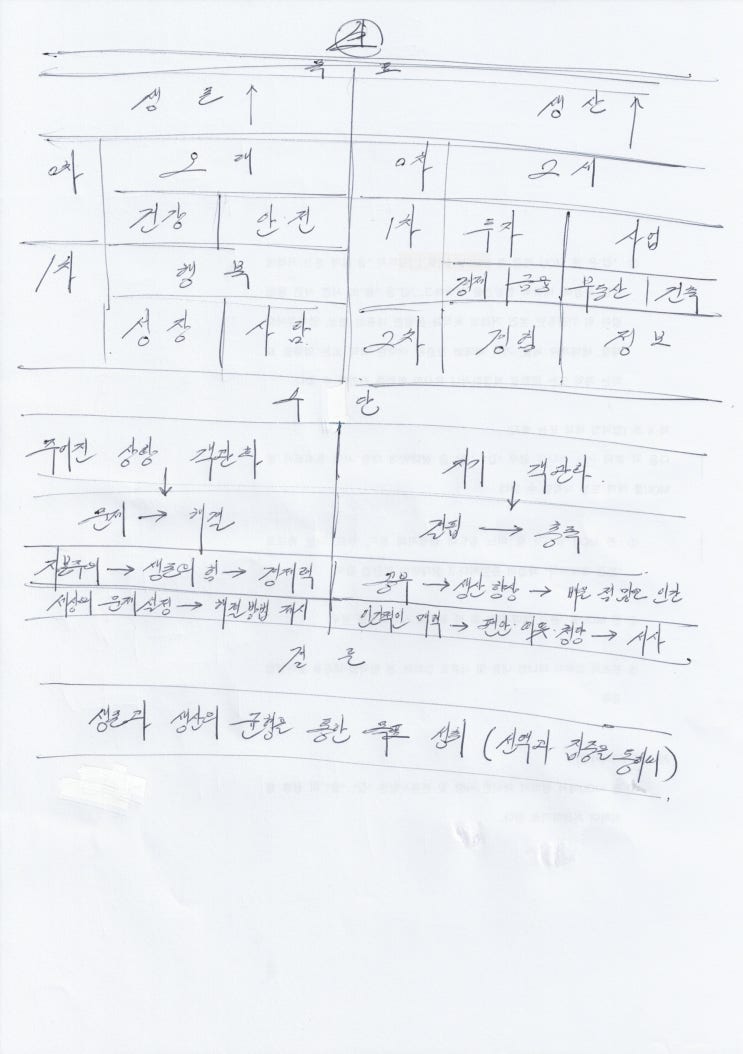 목 표
생 존 ↑ 생 산 ↑
0차 오 래 0차 2 세
건강 안 전 1차 투자 사업
1차 행 복 경제 금융 부동산 건축
성 장 사 람 2차 경험 정 보
수 단
주어진 상황 객관화 자기 객관화
↓ ↓
문제 → 해결 결핍 → 충족
자본주의 → 생존의 힘 → 경제력 공부 → 생산 향상 →
세상의 문제 설정 → 해결 방법 제시 인간적인 매력 → → 서사
결 론
생존과 생산의 균형을 통한 목표 성취 (선택과 집중을 통해서)